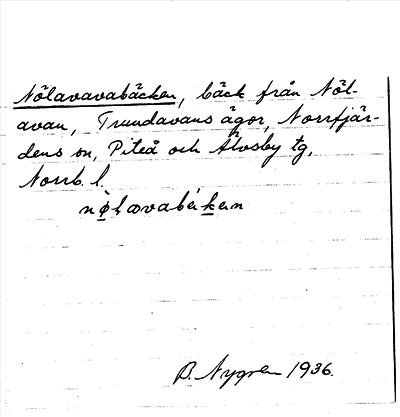 Nölavavabäcken, bäck från Nöl-
avan, Trundavans ägor, Norrfjär-
dens sn, Piteå och Älvsby tg,
Norrb. l.
B. Nygren 1936.